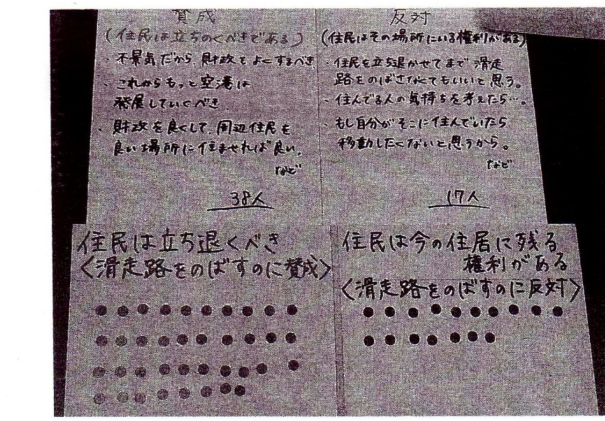 賛成
(住民は立ちのくべきである)
・不景気だから 財政をよくするべき
・これからもっと空港は
発展していくべき
・財政を良くして、周辺住民を
良い場所に住ませれば良い。
など
38人
反対
(住民はその場所にいる権利がある)
・住民を立ち退かせてまで 滑走
路をのばさなくてもいいと思う。
・住んでる人の気持ちを考えたら…。
・もし自分がそこに住んでいたら
移動したくないと思うから。
など
17人
住民は立ち退くべき
〈滑走路をのばすのに賛成〉
住民は今の住居に残る
権利がある
〈滑走路をのばすのに反対〉